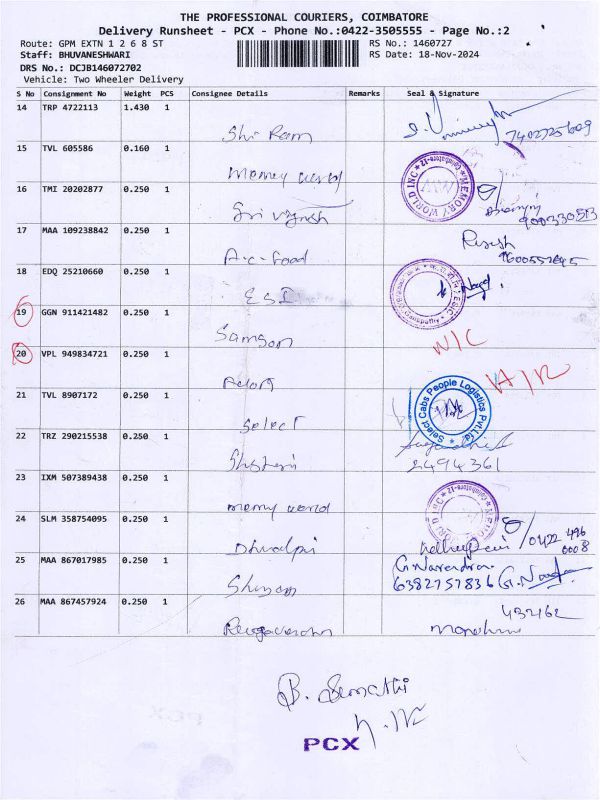 THE PROFESSIONAL COURIERS, COIMBATORE
Delivery Runsheet - PCX - Phone No.:0422-3505555 - Page No.:2
Route: GPM EXTN 1 2 6 8 ST
RS No.: 1460727
Staff: BHUVANESHWARI
RS Date: 18-Nov-2024
DRS No.: DCJB146072702
Vehicle: Two Wheeler Delivery
S No Consignment No Weight PCS Consignee Details Remarks Seal & Signature
14 TRP 4722113 1.430 1
Shri Ram
7402725609
15 TVL 605586 0.160 1
memory world
MEMORY WORLD INC Coimbatore-12
16 TMI 20202877 0.250 1
Sri Vignesh
17 MAA 109238842 0.250 1
A-c-food
Rejesh
18 EDQ 25210660 0.250 1
ESI
ESIC
Ganapathy
19 GGN 911421482 0.250 1
Samson
N/C
20 VPL 949834721 0.250 1
H/R
21 TVL 8907172 0.250 1
Select
Select Cabs People Logistics Pvt Ltd
22 TRZ 290215538 0.250 1
2494361
23 IXM 507389438 0.250 1
memory world
24 SLM 358754095 0.250 1
/0422 496
0008
25 MAA 867017985 0.250 1
Shyam
G. Narendran
6382757836
26 MAA 867457924 0.250 1
432162
B. Sumathi
PCX
PCX